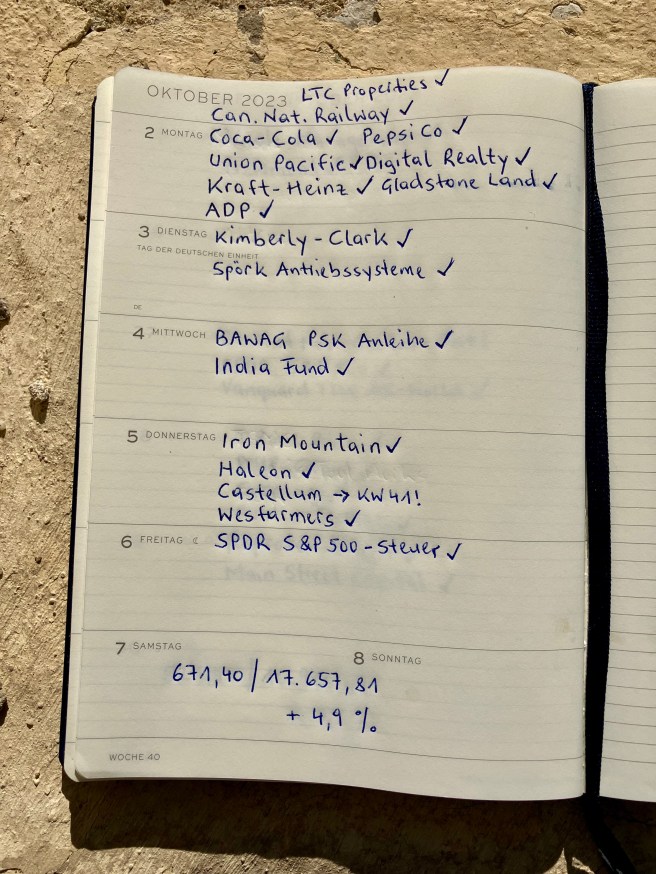 OKTOBER 2023 LTC Properties ✓
Can. Nat. Railway ✓
2 MONTAG Coca-Cola ✓ PepsiCo ✓
Union Pacific ✓ Digital Realty ✓
Kraft-Heinz ✓ Gladstone Land ✓
ADP ✓
3 DIENSTAG Kimberly-Clark ✓
TAG DER DEUTSCHEN EINHEIT
Spörk Antriebssysteme ✓
DE
4 MITTWOCH BAWAG PSK Anleihe ✓
India Fund ✓
5 DONNERSTAG Iron Mountain ✓
Haleon ✓
Castellum → KW41!
Wesfarmers ✓
6 FREITAG ☾ SPDR S&P500-Steuer ✓
7 SAMSTAG
8 SONNTAG
671,40 / 17.657,81
+ 4,9 %
WOCHE 40